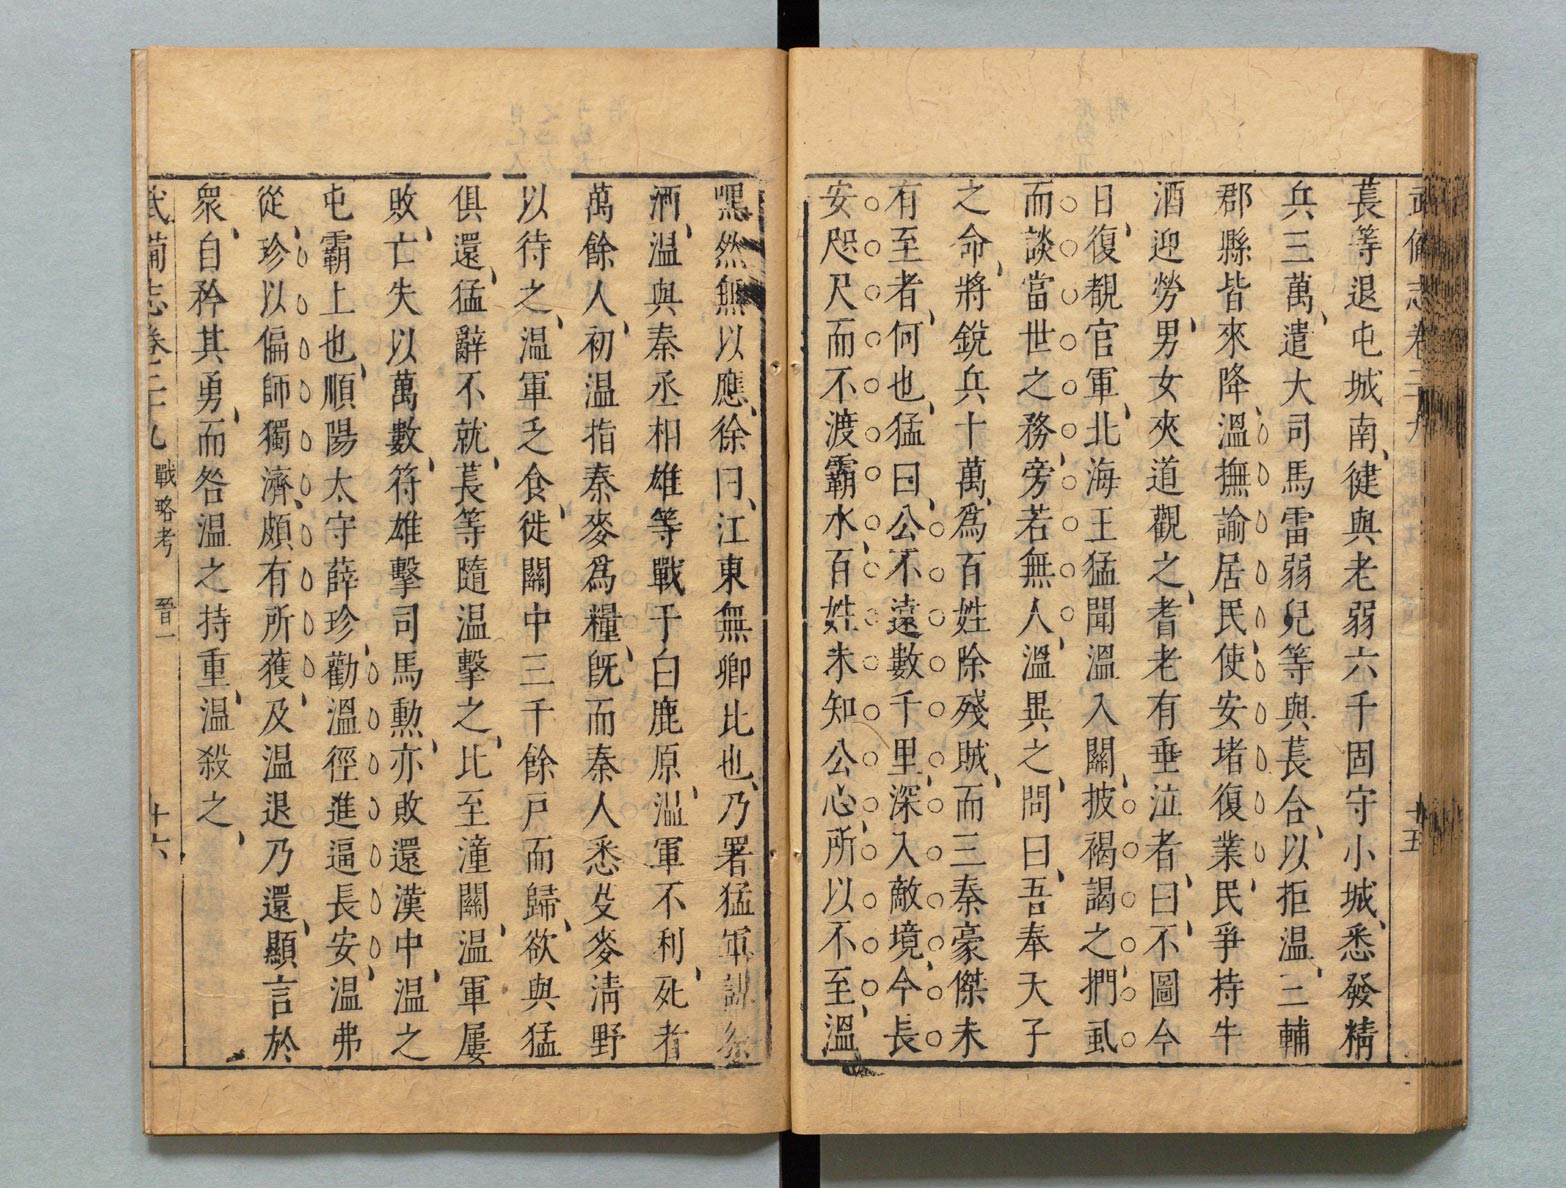 武備志卷三十九
十五
萇等退屯城南健與老弱六千固守小城悉發精
兵三萬遣大司馬雷弱兒等與萇合以拒温三輔
郡縣皆來降溫撫諭居民使安堵復業民爭持牛
酒迎勞男女夾道觀之耆老有垂泣者曰不圖今
日復覩官軍北海王猛聞溫入關披褐謁之捫虱
而談當世之務旁若無人溫異之問曰吾奉天子
之命將銳兵十萬爲百姓除殘賊而三秦豪傑未
有至者何也猛曰公不遠數千里深入敵境今長
安咫尺而不渡霸水百姓未知公心所以不至溫
嘿然無以應徐曰江東無卿比也乃署猛軍謀祭
酒温與秦丞相雄等戰于白鹿原温軍不利死者
萬餘人初温指秦麥爲糧旣而秦人悉芟麥淸野
以待之温軍乏食徙關中三千餘戸而歸欲與猛
俱還猛辭不就萇等隨温擊之比至潼關温軍屢
敗亡失以萬數符雄擊司馬勲亦敗還漢中温之
屯霸上也順陽太守薛珍勸溫徑進逼長安温弗
從珍以偏師獨濟頗有所獲及温退乃還顯言於
衆自矜其勇而咎温之持重温殺之
武備志卷三十九 戰略考 晉一 十六